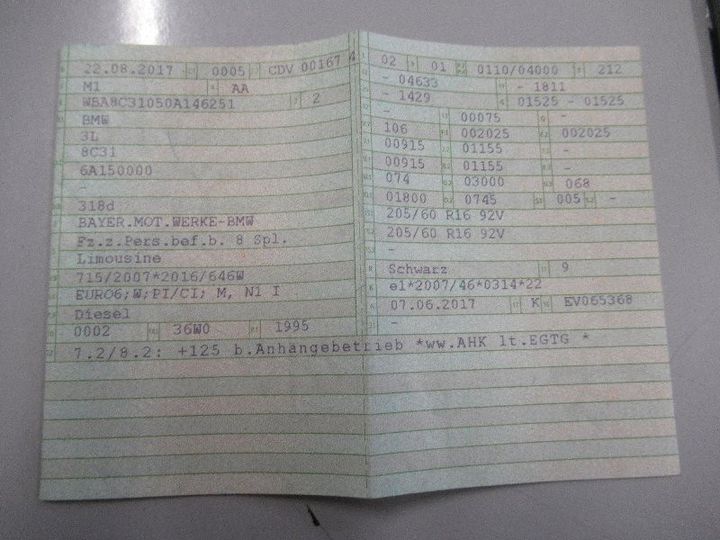 22.08.2017 0005 CDV 00167 4
M1 AA
WBA8C31050A146251 2
BMW
3L
8C31
6A150000
-
318d
BAYER.MOT.WERKE-BMW
Fz.z.Pers.bef.b. 8 Spl.
Limousine
715/2007*2016/646W
EURO6;W;PI/CI; M, N1 I
Diesel
0002 36W0 1995
7.2/8.2: +125 b.Anhängebetrieb *ww.AHK lt.EGTG *
02 01 0110/04000 212
- 04633 - 1811
- 1429 01525 - 01525
- 00075 -
106 002025 002025
00915 01155 -
00915 01155 -
074 03000 068
01800 0745 005 -
205/60 R16 92V
205/60 R16 92V
-
Schwarz 9
e1*2007/46*0314*22
07.06.2017 K EV065368
-